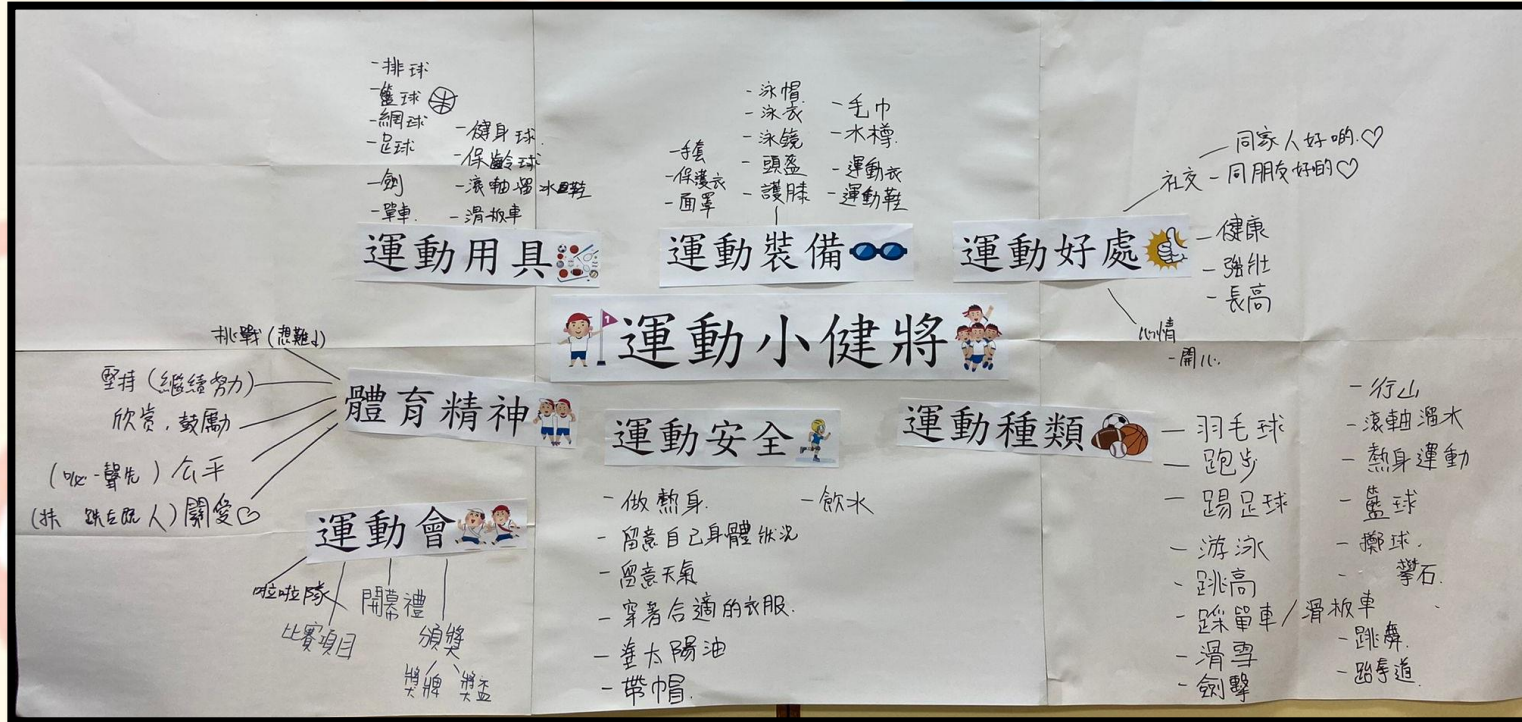 -排球
-籃球
-網球
-足球
-劍
-單車
-健身球
-保齡球
-滾軸溜冰鞋
-滑板車
運動用具
-手套
-保護衣
-面罩
-泳帽
-泳衣
-泳鏡
-頭盔
-護膝
-毛巾
-水樽
-運動衣
-運動鞋
運動裝備
運動好處
社交
同家人好啲♡
-同朋友好啲♡
-健康
-強壯
-長高
心情
-開心
1
運動小健將
體育精神
挑戰
堅持(繼續努力)
欣赏,鼓勵
公平
關愛♡
運動會
啦啦隊
比賽項目
開幕禮
頒獎
獎牌
獎盃
運動安全
-做熱身.
-留意自己身體狀况
-留意天氣
-穿著合適的衣服.
太陽油
-帶帽.
-飲水
運動種類
-羽毛球
-跑步
-踢足球
-游泳
-跳高
-踩單車/滑板車
-滑雪
-劍擊
-行山
-滾軸溜冰
-熱身運動
-籃球
-擲球.
-攀石.
-跳舞.
-跆拳道.